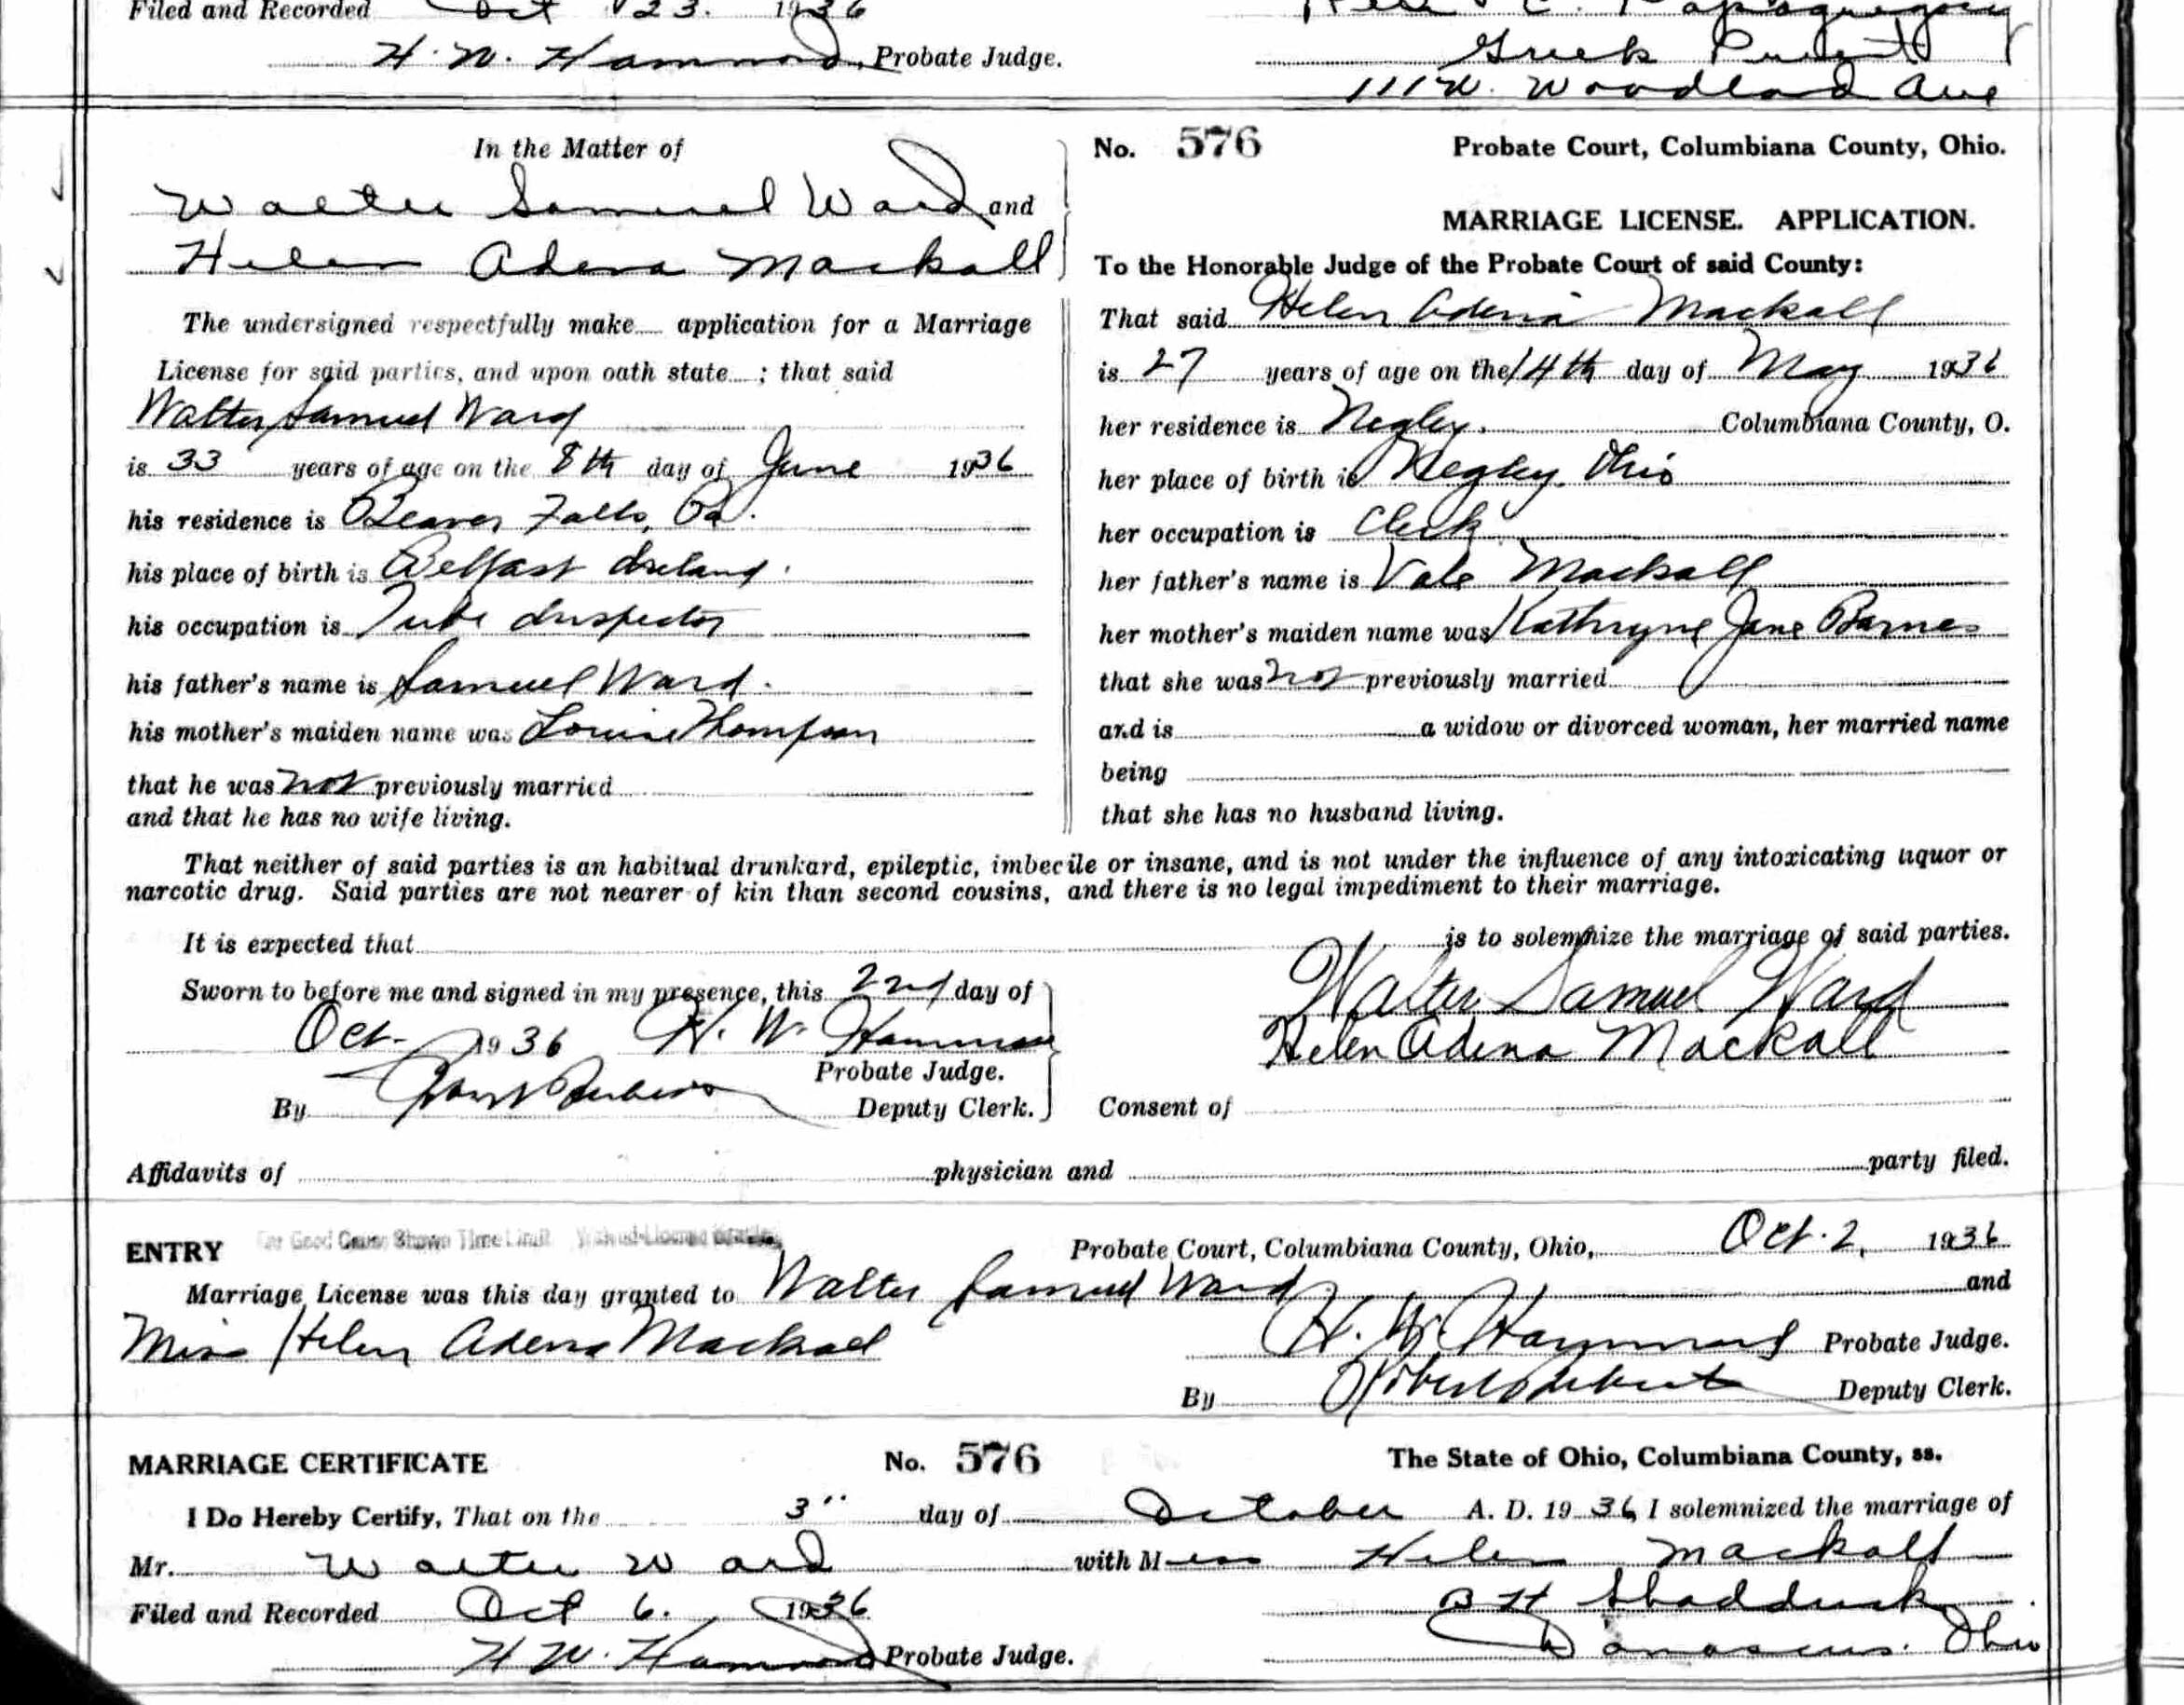 Filed and Recorded Oct 23. 1936
H. W. Hammond, Probate Judge.
C. Papagregory
Greek Priest
111 W. Woodland Ave
In the Matter of
Walter Samuel Ward and
Helen Adena Mackall
The undersigned respectfully make application for a Marriage
License for said parties, and upon oath state ; that said
Walter Samuel Ward
is 33 years of age on the 8th day of June 1936
his residence is Beaver Falls, Pa.
his place of birth is Belfast Ireland.
his occupation is Tube Inspector
his father's name is Samuel Ward.
his mother's maiden name was Louise Thompson
that he was not previously married
and that he has no wife living.
No. 576 Probate Court, Columbiana County, Ohio.
MARRIAGE LICENSE. APPLICATION.
To the Honorable Judge of the Probate Court of said County:
That said Helen Adena Mackall
is 27 years of age on the 14th day of May 1936
her residence is Negley. Columbiana County, O.
her place of birth is Negley. Ohio
her occupation is Clerk
her father's name is Vale Mackall
her mother's maiden name was Kathryne Jane Barnes
that she was not previously married
and is a widow or divorced woman, her married name
being
that she has no husband living.
That neither of said parties is an habitual drunkard, epileptic, imbecile or insane, and is not under the influence of any intoxicating liquor or
narcotic drug. Said parties are not nearer of kin than second cousins, and there is no legal impediment to their marriage.
It is expected that is to solemnize the marriage of said parties.
Sworn to before me and signed in my presence, this 22nd day of
Oct. 1936 H. W. Hammond
Probate Judge.
By Deputy Clerk.
Walter Samuel Ward
Helen Adena Mackall
Consent of
Affidavits of physician and party filed.
For Good Cause Shown Time Limit
ENTRY Probate Court, Columbiana County, Ohio, Oct. 2, 1936
Marriage License was this day granted to Walter Samuel Ward and
Miss Helen Adena Mackall
H. W. Hammond Probate Judge.
By Deputy Clerk.
MARRIAGE CERTIFICATE No. 576 The State of Ohio, Columbiana County, ss.
I Do Hereby Certify, That on the 3" day of October A. D. 1936 I solemnized the marriage of
Mr. Walter Ward with Miss Helen Mackall
Filed and Recorded Oct 6. 1936
H W. Hammond Probate Judge.
B H Shadduck
Damascus. Ohio